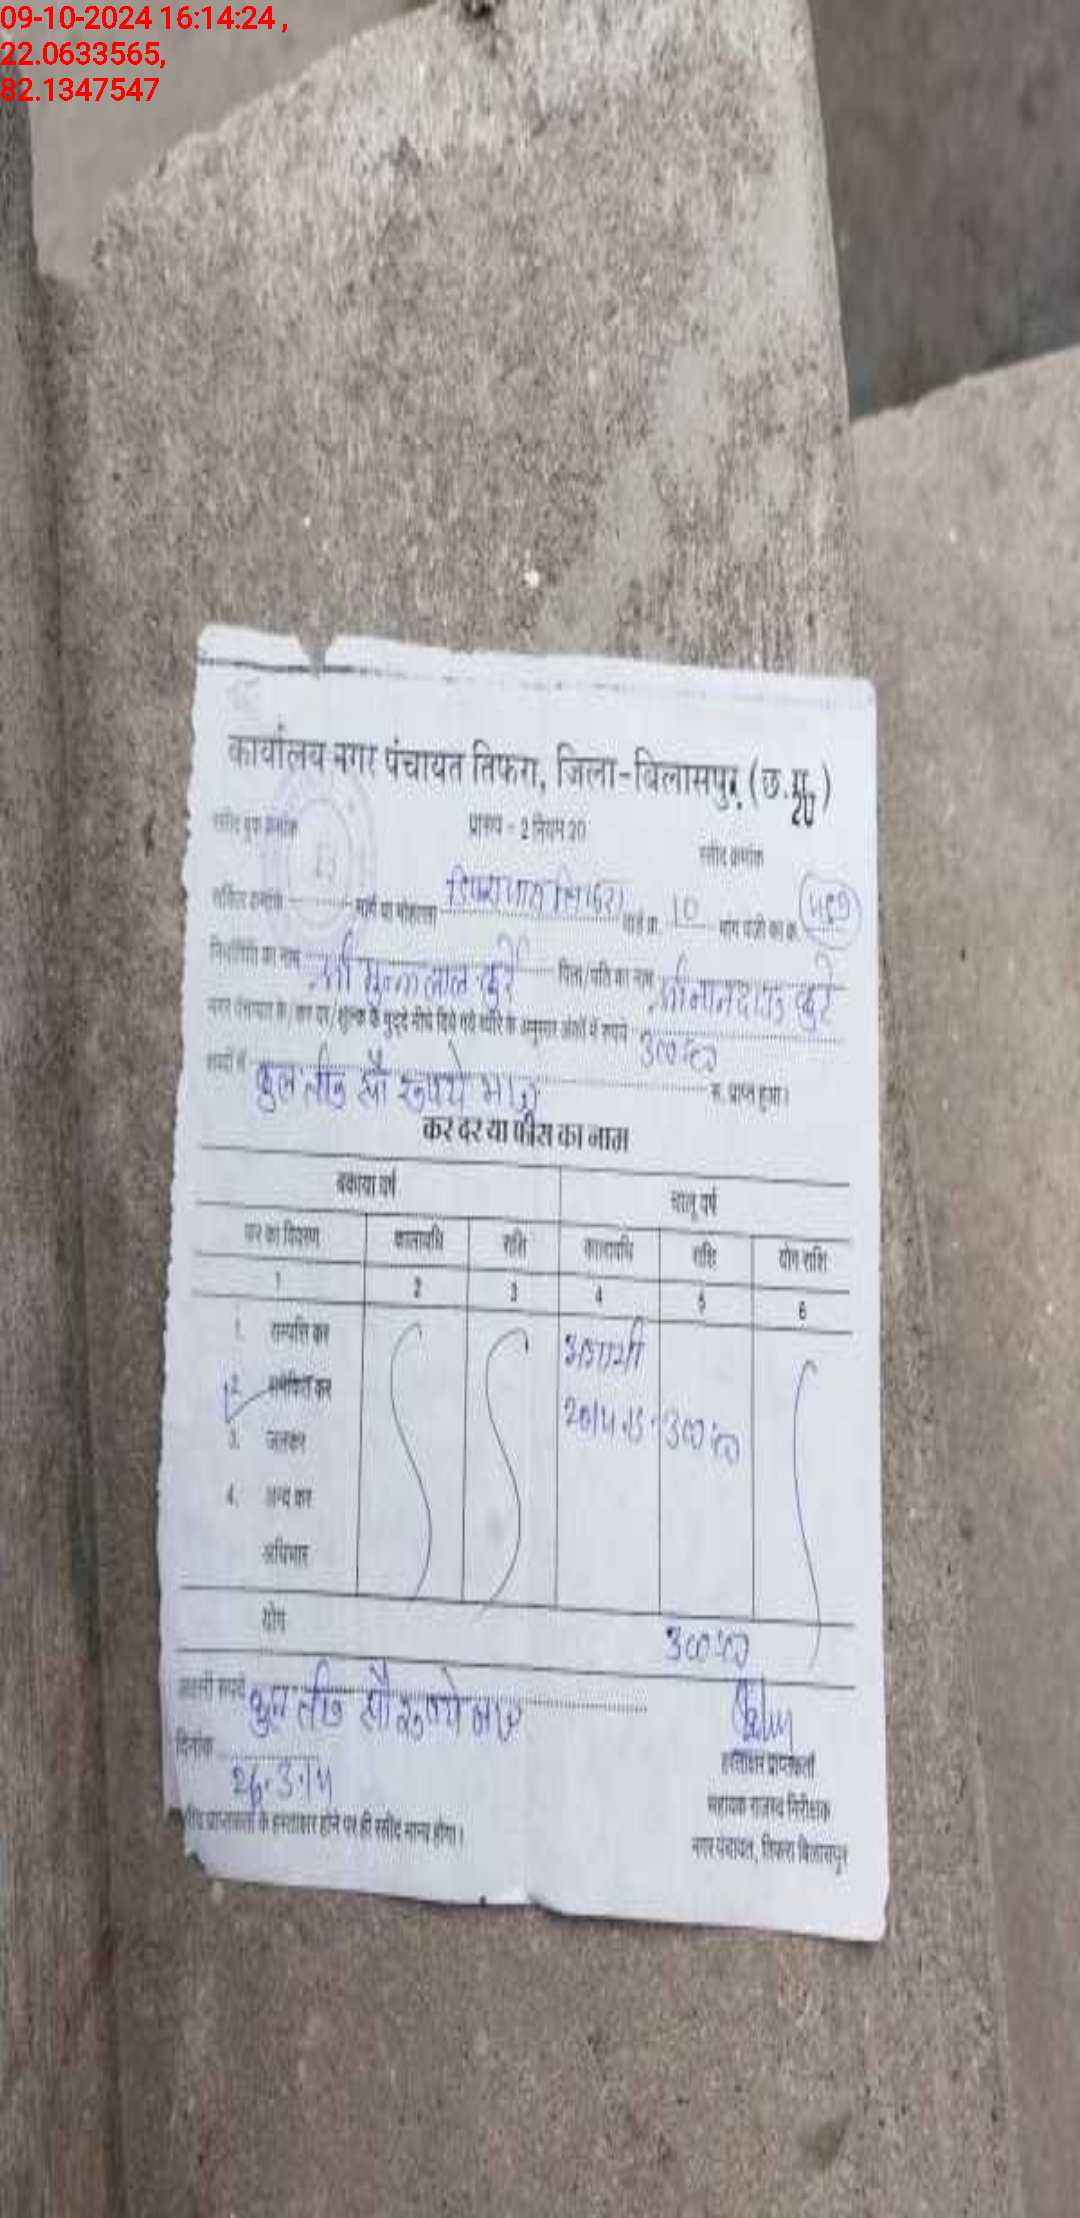 09-10-2024 16:14:24 ,
22.0633565,
82.1347547
कार्यालय नगर पंचायत तिफरा, जिला-बिलासपुर, (छ.ग.)
रसीद बुक क्रमांक प्रारूप - 2 नियम 20 रसीद क्रमांक
सर्किल क्रमांक मार्ग या मोहल्ला वार्ड क्र. 10 मांग पंजी का क्र.
निर्धारिती का नाम श्री मुन्नालाल कुर्रे पिता/पति का नाम कुर्रे
नगर पंचायत के/कर दर/शुल्क के मुद्दे नीचे दिये गये ब्यौरे के अनुसार अंकों में रूपये 300=00
शब्दों में कुल तीन सौ रूपये मात्र रू. प्राप्त हुआ।
कर दर या फीस का नाम
बकाया वर्ष चालू वर्ष
कर का विवरण कालावधि राशि कालावधि राशि योग राशि
1 2 3 4 5 6
1. सम्पत्ति कर
2. समेकित कर 300=00
3. जलकर
4. अन्य कर
अधिभार
योग 300=00
रूपये कुल तीन सौ रूपये मात्र
दिनांक 26.3.14
हस्ताक्षर प्राप्तकर्ता
सहायक राजस्व निरीक्षक
नगर पंचायत, तिफरा बिलासपुर
प्राप्तकर्ता के हस्ताक्षर होने पर ही रसीद मान्य होगा।